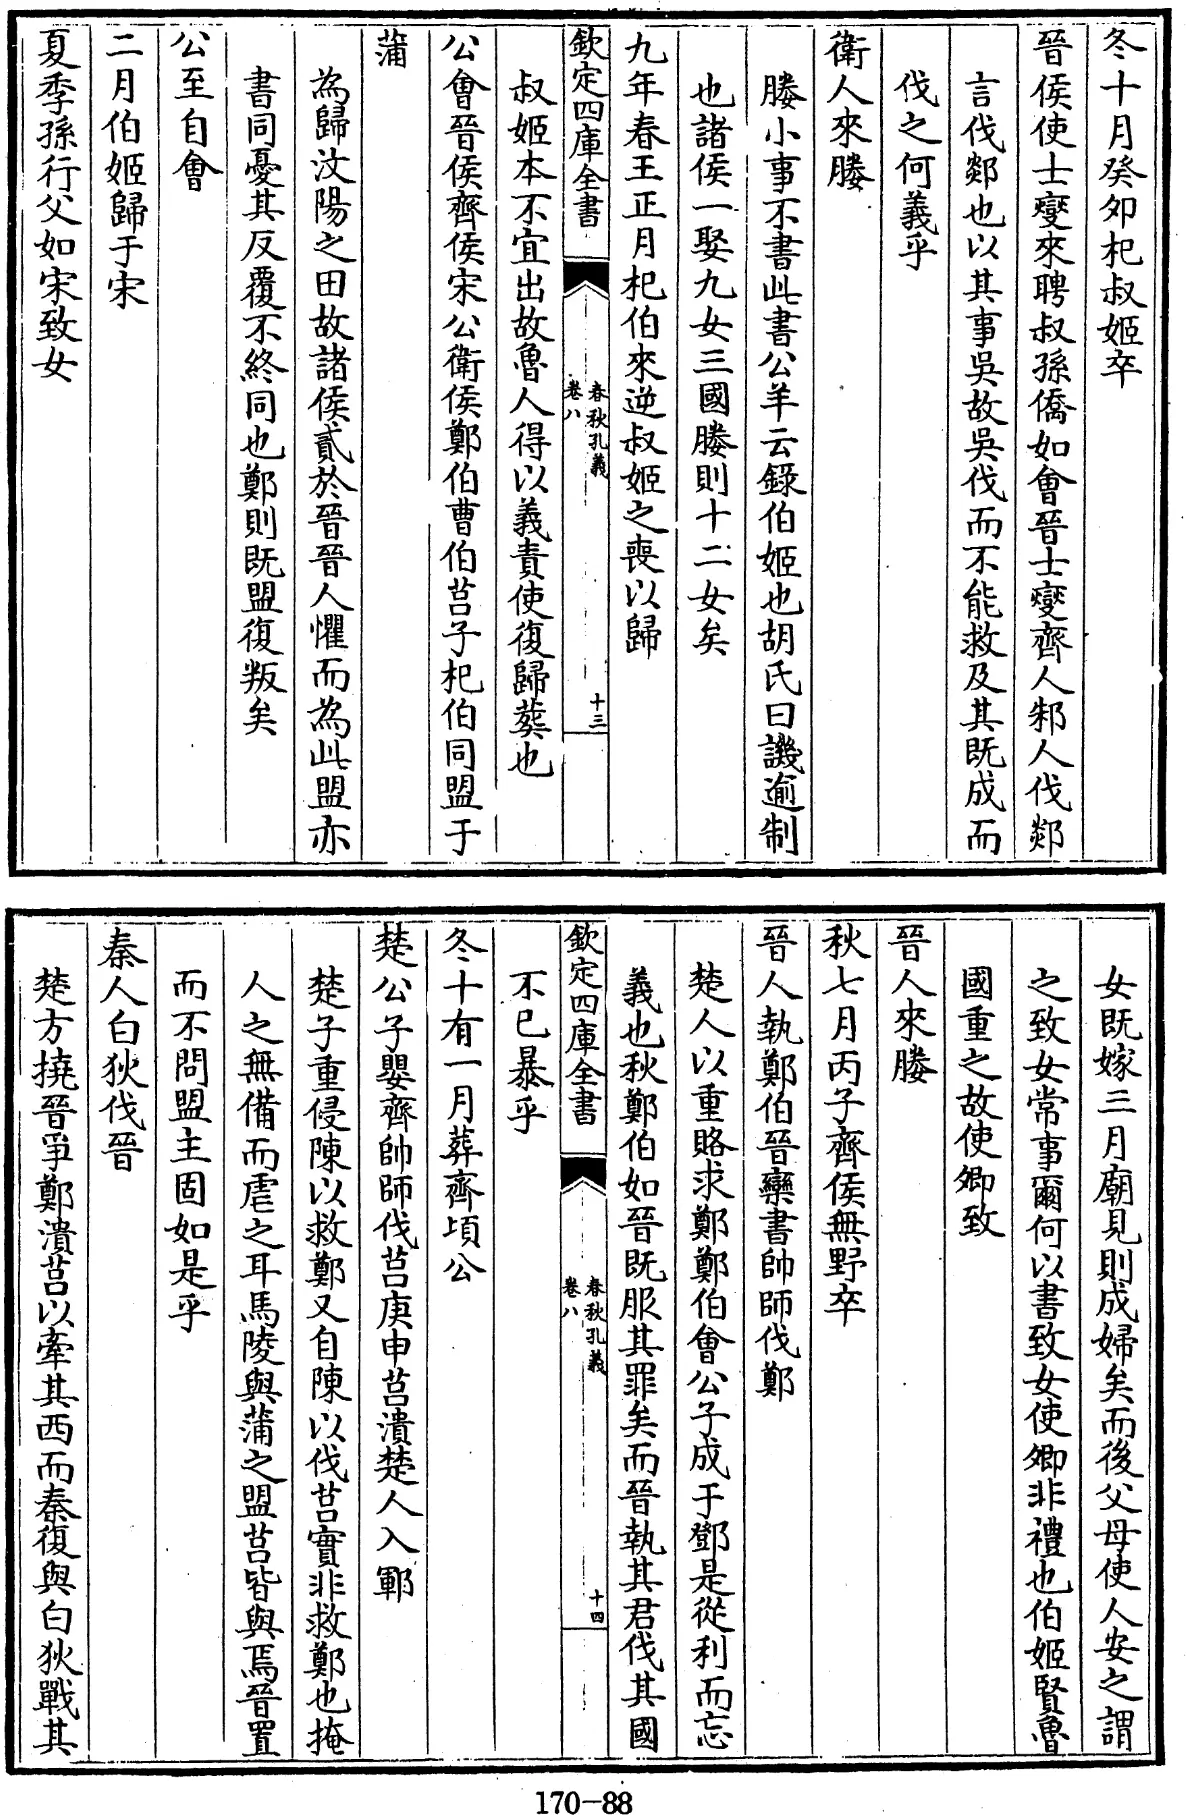 冬十月癸卯杞叔姬卒
晉侯使士燮來聘叔孫僑如會晉士燮齊人邾人伐郯
言伐郯也以其事吳故吳伐而不能救及其既成而
伐之何義乎
衛人來媵
媵小事不書此書公羊云錄伯姬也胡氏曰譏逾制
也諸侯一娶九女三國媵則十二女矣
九年春王正月杞伯來逆叔姬之喪以歸
欽定四庫全書
春秋孔義
卷八
十三
叔姬本不宜出故魯人得以義責使復歸葬也
公會晉侯齊侯宋公衛侯鄭伯曹伯莒子杞伯同盟于
蒲
為歸汶陽之田故諸侯貳於晉晉人懼而為此盟亦
書同憂其反覆不終同也鄭則既盟復叛矣
公至自會
二月伯姬歸于宋
夏季孫行父如宋致女
女既嫁三月廟見則成婦矣而後父母使人安之謂
之致女常事爾何以書致女使卿非禮也伯姬賢魯
國重之故使卿致
晉人來媵
秋七月丙子齊侯無野卒
晉人執鄭伯晉欒書帥師伐鄭
楚人以重賂求鄭鄭伯會公子成于鄧是從利而忘
義也秋鄭伯如晉既服其罪矣而晉執其君伐其國
欽定四庫全書
春秋孔義
卷八
十四
不已暴乎
冬十有一月葬齊頃公
楚公子嬰齊帥師伐莒庚申莒潰楚人入鄆
楚子重侵陳以救鄭又自陳以伐莒實非救鄭也掩
人之無備而虐之耳馬陵與蒲之盟莒皆與焉晉置
而不問盟主固如是乎
秦人白狄伐晉
楚方撓晉爭鄭潰莒以牽其西而秦復與白狄戰其
170-88